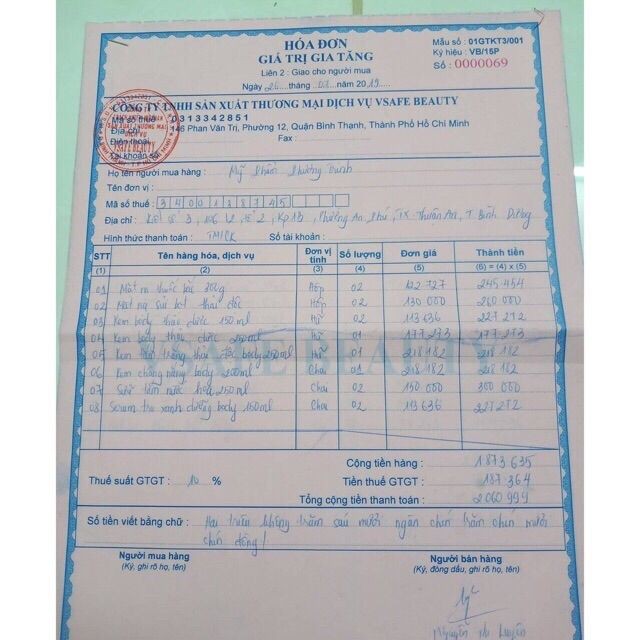 HÓA ĐƠN
GIÁ TRỊ GIA TĂNG
Liên 2 : Giao cho người mua
Ngày 26 tháng 03 năm 2019
Mẫu số : 01GTKT3/001
Ký hiệu : VB/15P
Số : 0000069
CÔNG TY TNHH SẢN XUẤT THƯƠNG MẠI DỊCH VỤ VSAFE BEAUTY
Mã số thuế : 0313342851
Địa chỉ : 146 Phan Văn Trị, Phường 12, Quận Bình Thạnh, Thành Phố Hồ Chí Minh
Điện thoại : Fax :
Tài khoản số :
VSAFE BEAUTY
Họ tên người mua hàng : Mỹ Phẩm
Tên đơn vị :
Mã số thuế : 3400188745
Địa chỉ : 106 Kp 1B, Phường An Phú, TX Thuận An, T Bình Dương
Hình thức thanh toán : TM/CK Số tài khoản :
STT Tên hàng hóa, dịch vụ Đơn vị tính Số lượng Đơn giá Thành tiền
(1) (2) (3) (4) (5) (6) = (4) x (5)
01 Mặt nạ thuốc bắc 300g Hộp 02 122 727 245 454
02 Mặt nạ Hộp 02 130 000 260 000
03 Kem body thảo dược 150ml Hũ 02 113 636 227 272
04 Kem body thảo dược 250ml Hũ 01 177 273 177 273
05 Kem tắm trắng thảo dược body 250ml Hũ 01 218 182 218 182
06 Kem chống nắng body 200ml Chai 01 218 182 218 182
07 Sữa tắm nước hoa 250ml Chai 02 150 000 300 000
08 Serum trà xanh dưỡng body 150ml Chai 02 113 636 227 272
SAFE BEAUTY
Cộng tiền hàng : 1 873 635
Thuế suất GTGT : 10 % Tiền thuế GTGT : 187 364
Tổng cộng tiền thanh toán : 2 060 999
Số tiền viết bằng chữ : Hai triệu không trăm sáu mươi ngàn chín trăm chín mươi
chín đồng!
Người mua hàng Người bán hàng
(Ký, ghi rõ họ, tên) (Ký, đóng dấu, ghi rõ họ, tên)
Nguyễn Thị